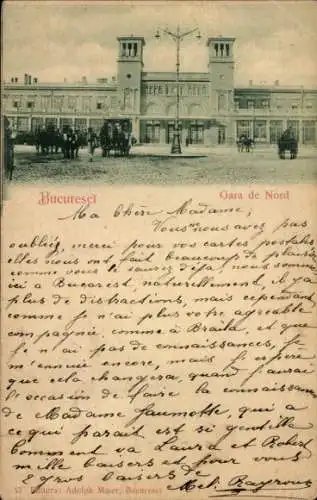 Bucuresci
Gara de Nord
Ma chère Madame,
Vous ne nous avez pas
oubliés, merci pour vos cartes postales
elles nous ont fait beaucoup de plaisir
comme vous le saurez déjà, nous sommes
ici à Bucarest, naturellement, il y a
plus de distractions, mais cependant
comme je n'ai plus votre agréable
compagnie, comme à Braila, et que
je n'ai pas de connaissances, je
m'ennuie encore, mais j'espère
que cela changera, quand j'aurai
l'occasion de faire la connaissance
de Madame, qui à
ce qui parait est si gentille
Comment va Laura et Robert
mille baisers et pour vous
2 gros baisers
Editura: Adolph Maier, Bucuresci